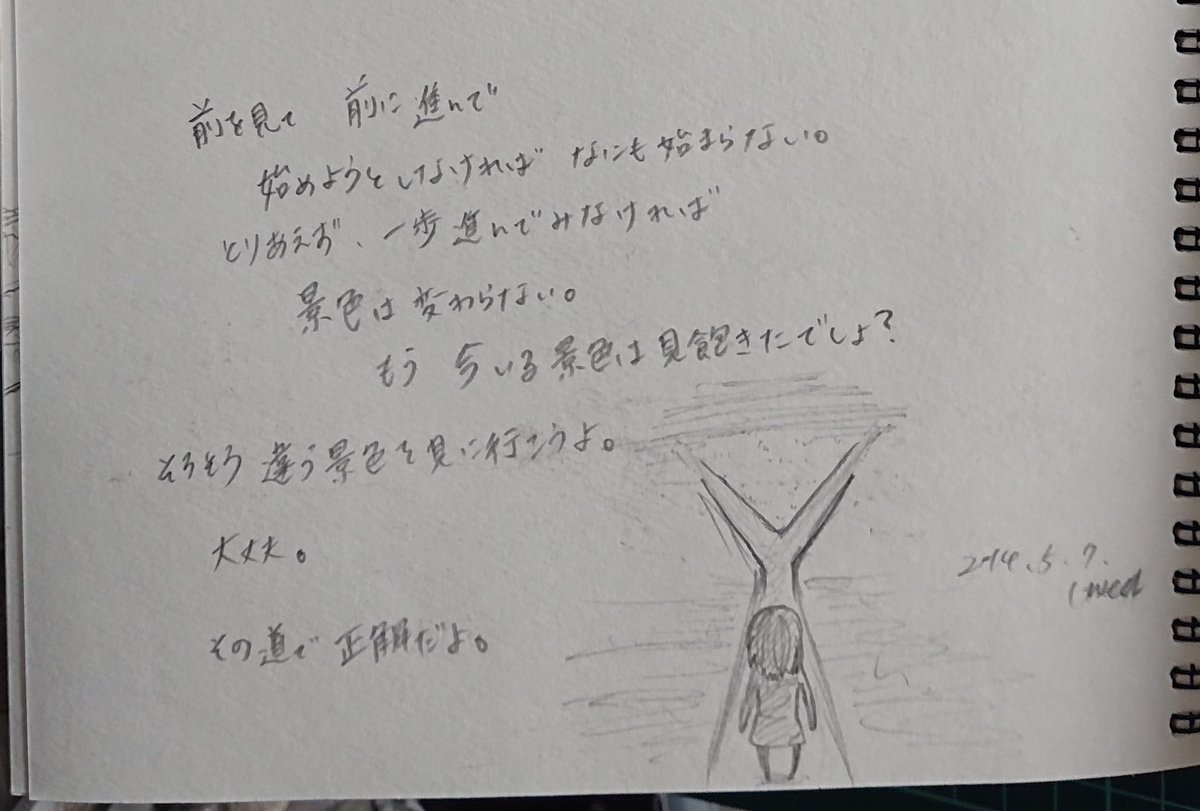 前を見て 前に進んで
始めようとしなければ なにも始まらない。
とりあえず、一歩 進んでみなければ
景色は変わらない。
もう 今いる景色は見飽きたでしょ?
そろそろ 違う景色を見に行こうよ。
大丈夫。
その道で 正解だよ。
5.7.